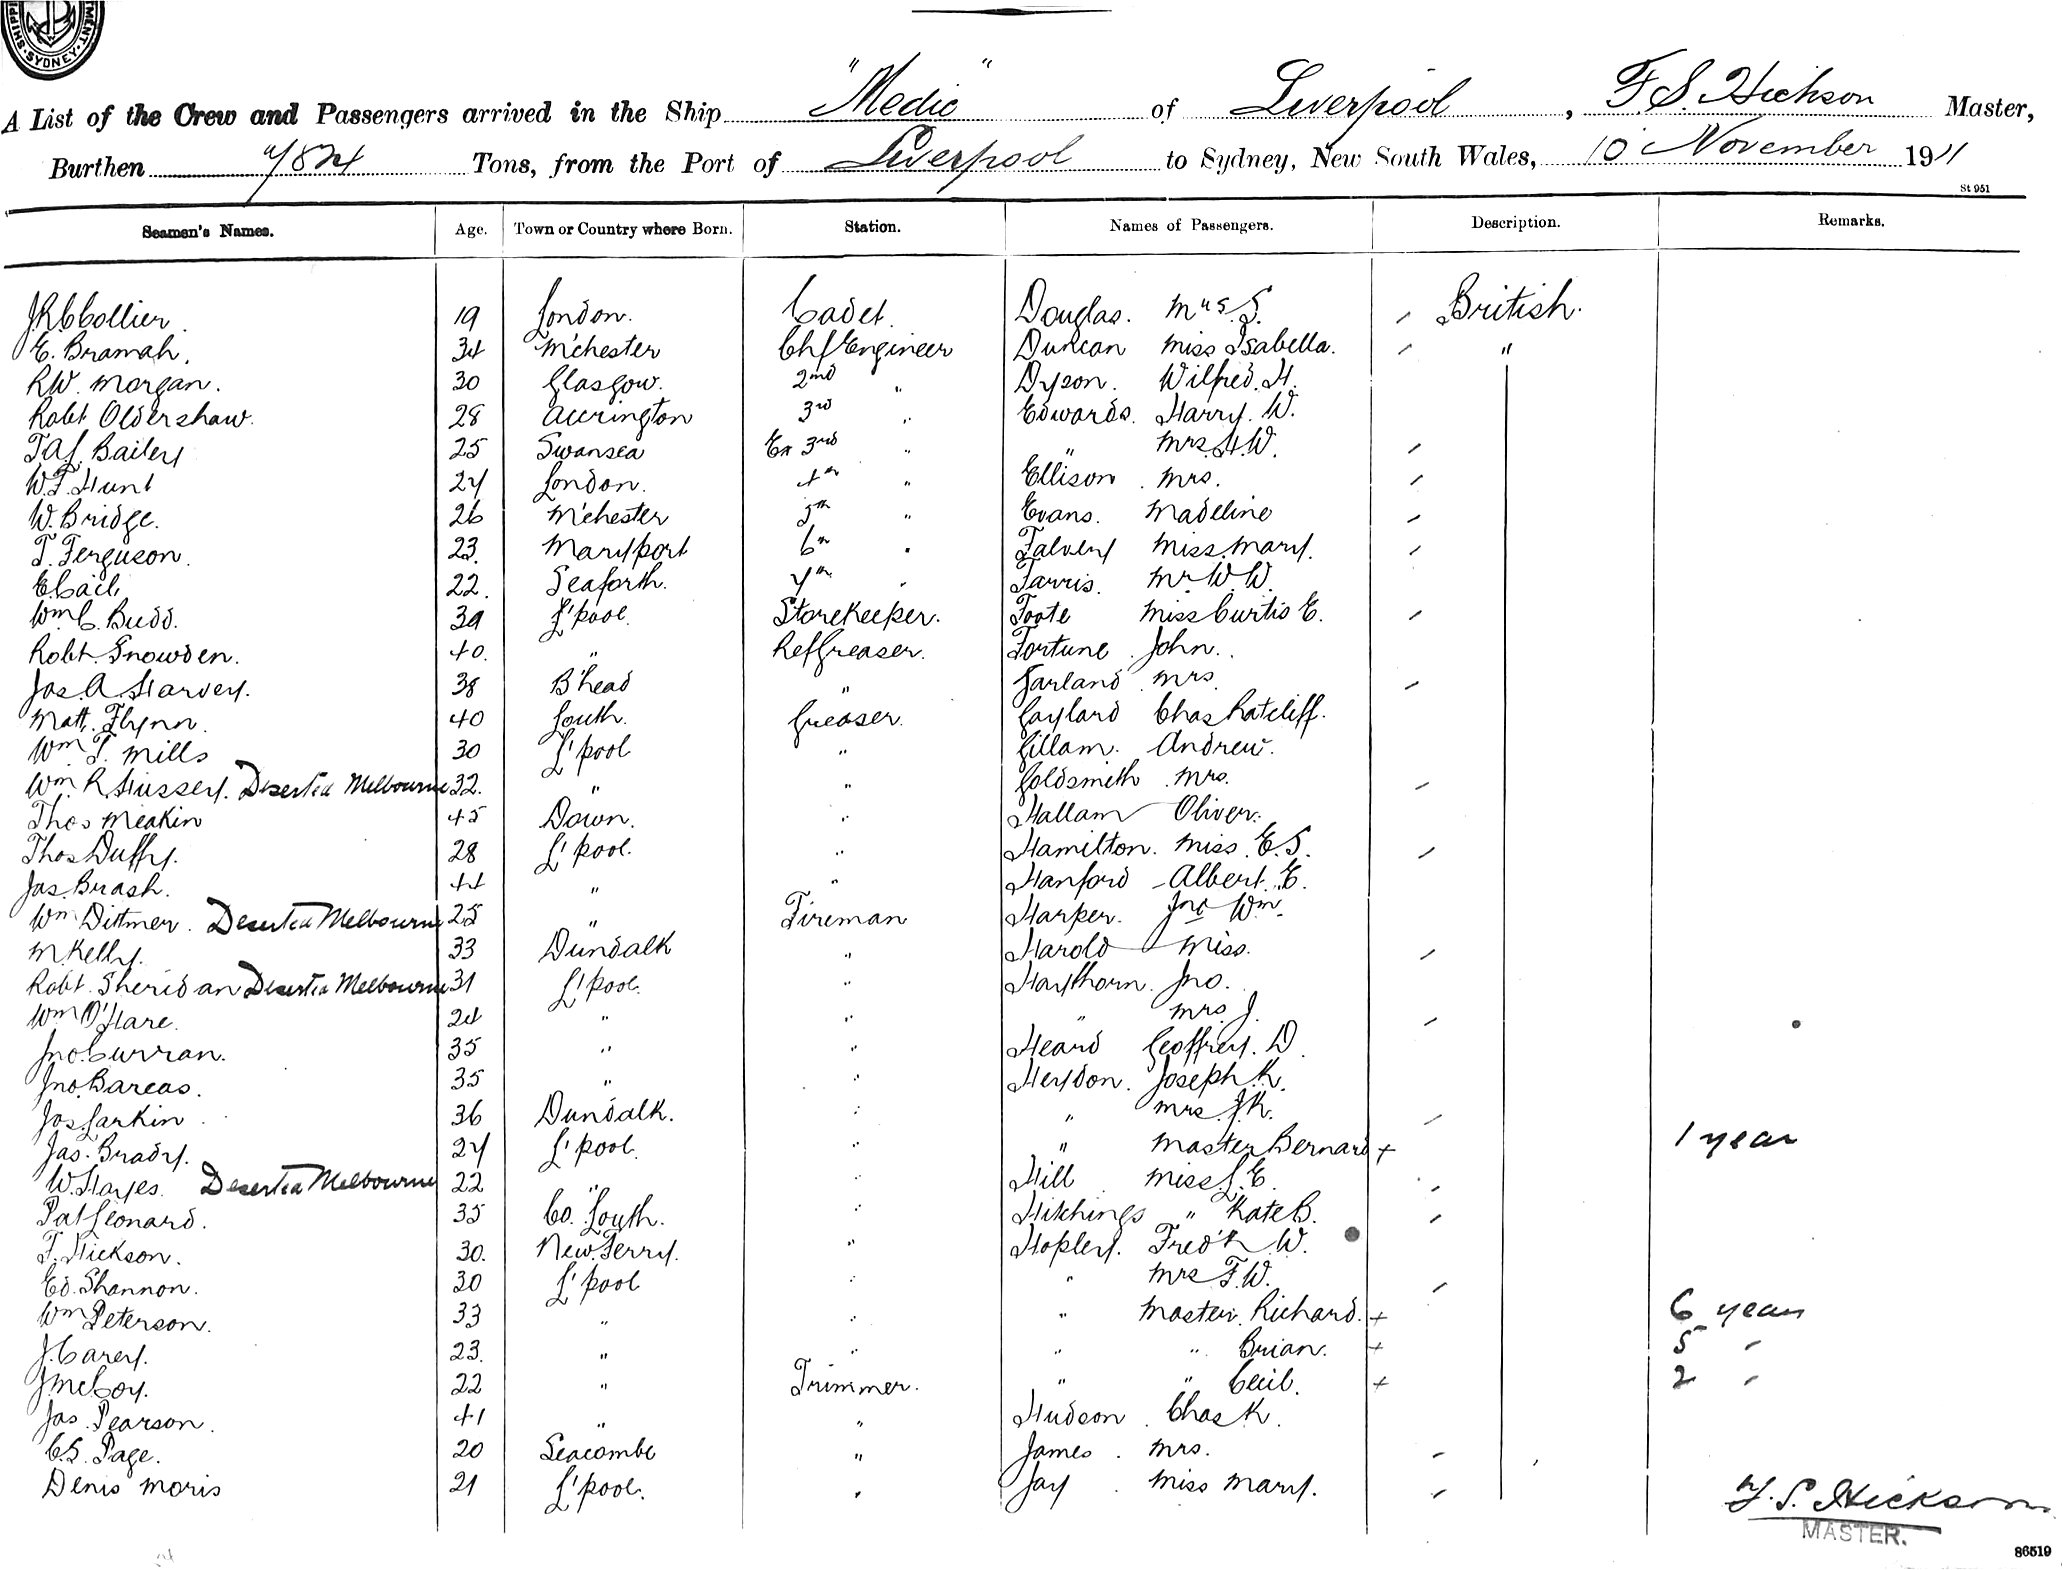 SHIPPI MENT. SYDNEY.
A List of the Crew and Passengers arrived in the Ship "Medic" of Liverpool, F S. Hickson Master,
Burthen Tons, from the Port of Liverpool to Sydney, New South Wales, 10 November 1911
St 951
Seamen's Names. Age. Town or Country where Born. Station. Names of Passengers. Description. Remarks.
J.R.C Collier 19 London. Cadet. Douglas. Mrs. S. / British.
E. Bramah. 34 M'chester Chf Engineer Duncan Miss Isabella. / "
R.W. Morgan. 30 Glasgow. 2nd " Dyson. Wilfred. H.
Robt Oldershaw. 28 Accrington 3rd " Edwards. Harry. W.
T.A.J. Bailey 25 Swansea Ex 3rd " " Mrs. H.W. /
W.F. Hunt 24 London. 4th " Ellison. Mrs. /
W. Bridge. 26 M'chester 5th " Evans. Madeline /
T. Ferguson. 23. Maryport 6th " Falvey Miss. Mary. /
E. Cail 22. Seaforth. 7th " Farris. Mr W.W.
Wm C. Budd. 39 L'pool. Storekeeper. Foote Miss Curtis E. /
Robt. Snowden. 40. " Ref Greaser. Fortune John.
Jas. A. Harvey. 38 B'head " Garland Mrs. /
Matt. Flynn. 40 Louth. Greaser. Gaylard Chas Ratcliff.
Wm T. Mills 30 L'pool " Gillam. Andrew.
Wm. R. Hussey. Deserted Melbourne 32. " " Goldsmith Mrs. /
Thos Meakin 45 Down. " Hallam Oliver.
Thos Duffy. 28 L'pool. " Hamilton. Miss. E.S. /
Jas. Brash. 44 " " Hanford Albert. E.
Wm Dittmer. Deserted Melbourne 25 " Fireman Harper. Jno Wm.
M. Kelly. 33 Dundalk " Harold Miss. /
Robt. Sheridan Deserted Melbourne 31 L'pool. " Haythorn. Jno.
Wm O'Hare. 24 " " " Mrs. J. /
Jno. Curran. 35 " " Heard Geoffrey. D.
Jno. Bareas. 35 " " Heydon. Joseph K.
Jos. Larkin 36 Dundalk. " " Mrs. J.K. /
Jas. Brady. 24 L'pool. " " Master Bernard + 1 year
W. Hayes. Deserted Melbourne 22 " " Hill Miss L.E. /
Pat Leonard. 35 Co. Louth. " Hitchings " Kate B. /
T. Hickson. 30. New Ferry. " Hopley. Fred'k W.
Ed. Shannon. 30 L'pool " " Mrs F.W. /
Wm Peterson. 33 " " " Master. Richard. + 6 years
J. Carey. 23. " " " " Brian. + 5 "
J. McCoy. 22 " Trimmer. " " Cecil. + 2 "
Jas. Pearson. 41 " " Hudson Chas K.
C.S. Page. 20 Seacombe " James. Mrs. /
Denis Moris 21 L'pool. " Jay Miss Mary. /
F. S. Hickson
MASTER.
86519